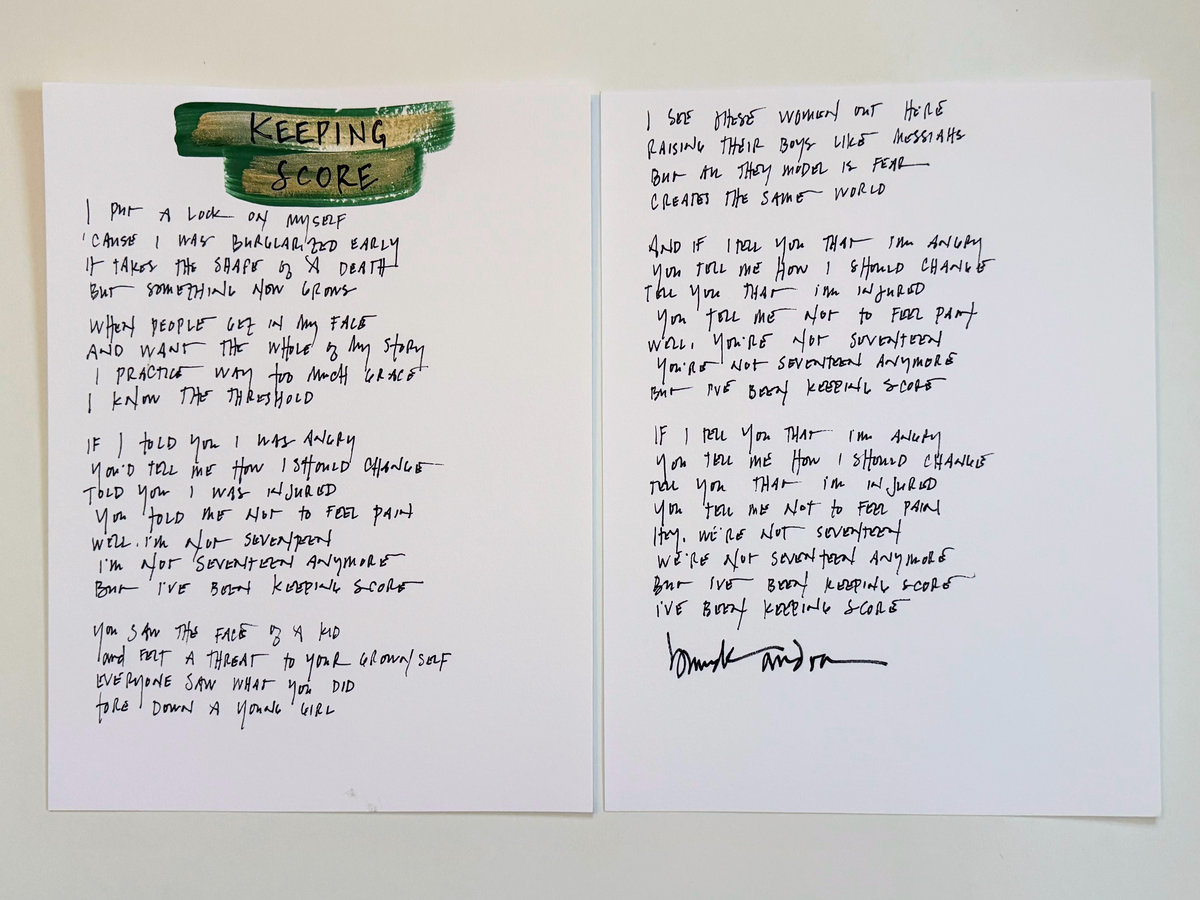 KEEPING
SCORE
I PUT A LOCK ON MYSELF
'CAUSE I WAS BURGLARIZED EARLY
IT TAKES THE SHAPE OF A DEATH
BUT SOMETHING NOW GROWS
WHEN PEOPLE GET IN MY FACE
AND WANT THE WHOLE OF MY STORY
I PRACTICE WAY TOO MUCH GRACE
I KNOW THE THRESHOLD
IF I TOLD YOU I WAS ANGRY
YOU'D TELL ME HOW I SHOULD CHANGE
TOLD YOU I WAS INJURED
YOU TOLD ME NOT TO FEEL PAIN
WELL, I'M NOT SEVENTEEN
I'M NOT SEVENTEEN ANYMORE
BUT I'VE BEEN KEEPING SCORE
YOU SAW THE FACE OF A KID
and FELT A THREAT TO YOUR GROWN SELF
EVERYONE SAW WHAT YOU DID
TORE DOWN A YOUNG GIRL
I SEE THESE WOMEN OUT HERE
RAISING THEIR BOYS LIKE MESSIAHS
BUT ALL THEY MODEL IS FEAR
CREATES THE SAME WORLD
AND IF I TELL YOU THAT I'M ANGRY
YOU TELL ME HOW I SHOULD CHANGE
TELL YOU THAT I'M INJURED
YOU TELL ME NOT TO FEEL PAIN
WELL, YOU'RE NOT SEVENTEEN
YOU'RE NOT SEVENTEEN ANYMORE
BUT I'VE BEEN KEEPING SCORE
IF I TELL YOU THAT I'M ANGRY
YOU TELL ME HOW I SHOULD CHANGE
TELL YOU THAT I'M INJURED
YOU TELL ME NOT TO FEEL PAIN
HEY, WE'RE NOT SEVENTEEN
WE'RE NOT SEVENTEEN ANYMORE
BUT I'VE BEEN KEEPING SCORE
I'VE BEEN KEEPING SCORE